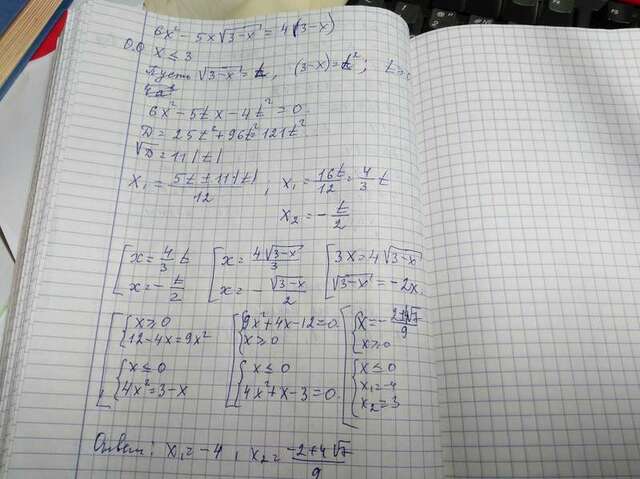 6x² - 5x√(3-x) = 4(3-x)
О.О x ≤ 3
Пусть √(3-x) = t, (3-x) = t²; t ≥ 0
6x² - 5tx - 4t² = 0.
D = 25t² + 96t² 121t²
√D = 11|t|
x₁ = (5t ± 11|t|)/12; x₁ = 16t/12 = 4/3 t
x₂ = - t/2
[x = 4/3 t [x = 4√(3-x)/3 [3x = 4√(3-x)
x = - t/2 x = - √(3-x)/2 √(3-x) = -2x.
[{x ≥ 0 [{9x² + 4x - 12 = 0. [{x = -2+4√7/9
12 - 4x = 9x² x ≥ 0 x ≥ 0
{x ≤ 0 {x ≤ 0 {x ≤ 0
4x² = 3 - x 4x² + x - 3 = 0. x₁ = -4
x₂ = 3
Ответ: x₁ = -4, x₂ = (-2+4√7)/9